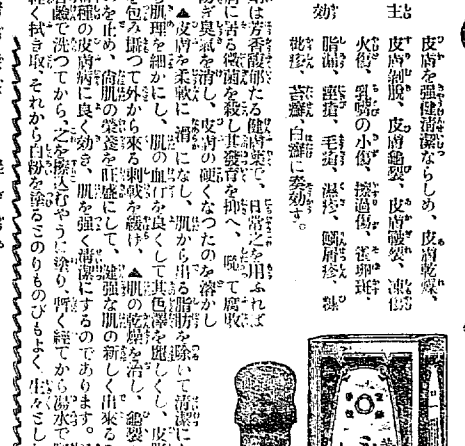 主
効
皮膚を强健清潔ならしめ、皮膚乾燥、
皮膚剝脫、皮膚龜裂、皮膚皸裂、凍傷
火傷、乳嘴の小傷、擦過傷、雀卵斑、
脂漏、痤瘡、毛瘡、濕疹、鱗屑疹、糠
枇疹、苔癬、白癬に奏効す。
は芳香馥郁たる健膚藥で、日常之を用ふれば
膚に害る黴菌を殺し其發育を抑へ、腐敗
防ぎ臭氣を消し、皮膚の硬くなつたのを溶かし
▲皮膚を柔軟に滑になし、肌から出る脂肪を除いて清潔に
肌理を細かにし、肌の血行を良くして其色澤を麗しくし、皮膚
を包み攝つて外から來る刺戟を緩け、▲肌の乾燥を治し、龜裂
を止め、尙肌の榮養を旺盛にして、健强な肌の新しく出來る
種の皮膚病に良く効き、肌を强く清潔にするのであります。
鹼で洗つてから、之を擦込むやうに塗り、暫く經てから湯水で
輕く拭き取、それから白粉を塗るとのりものびもよく、生々とし